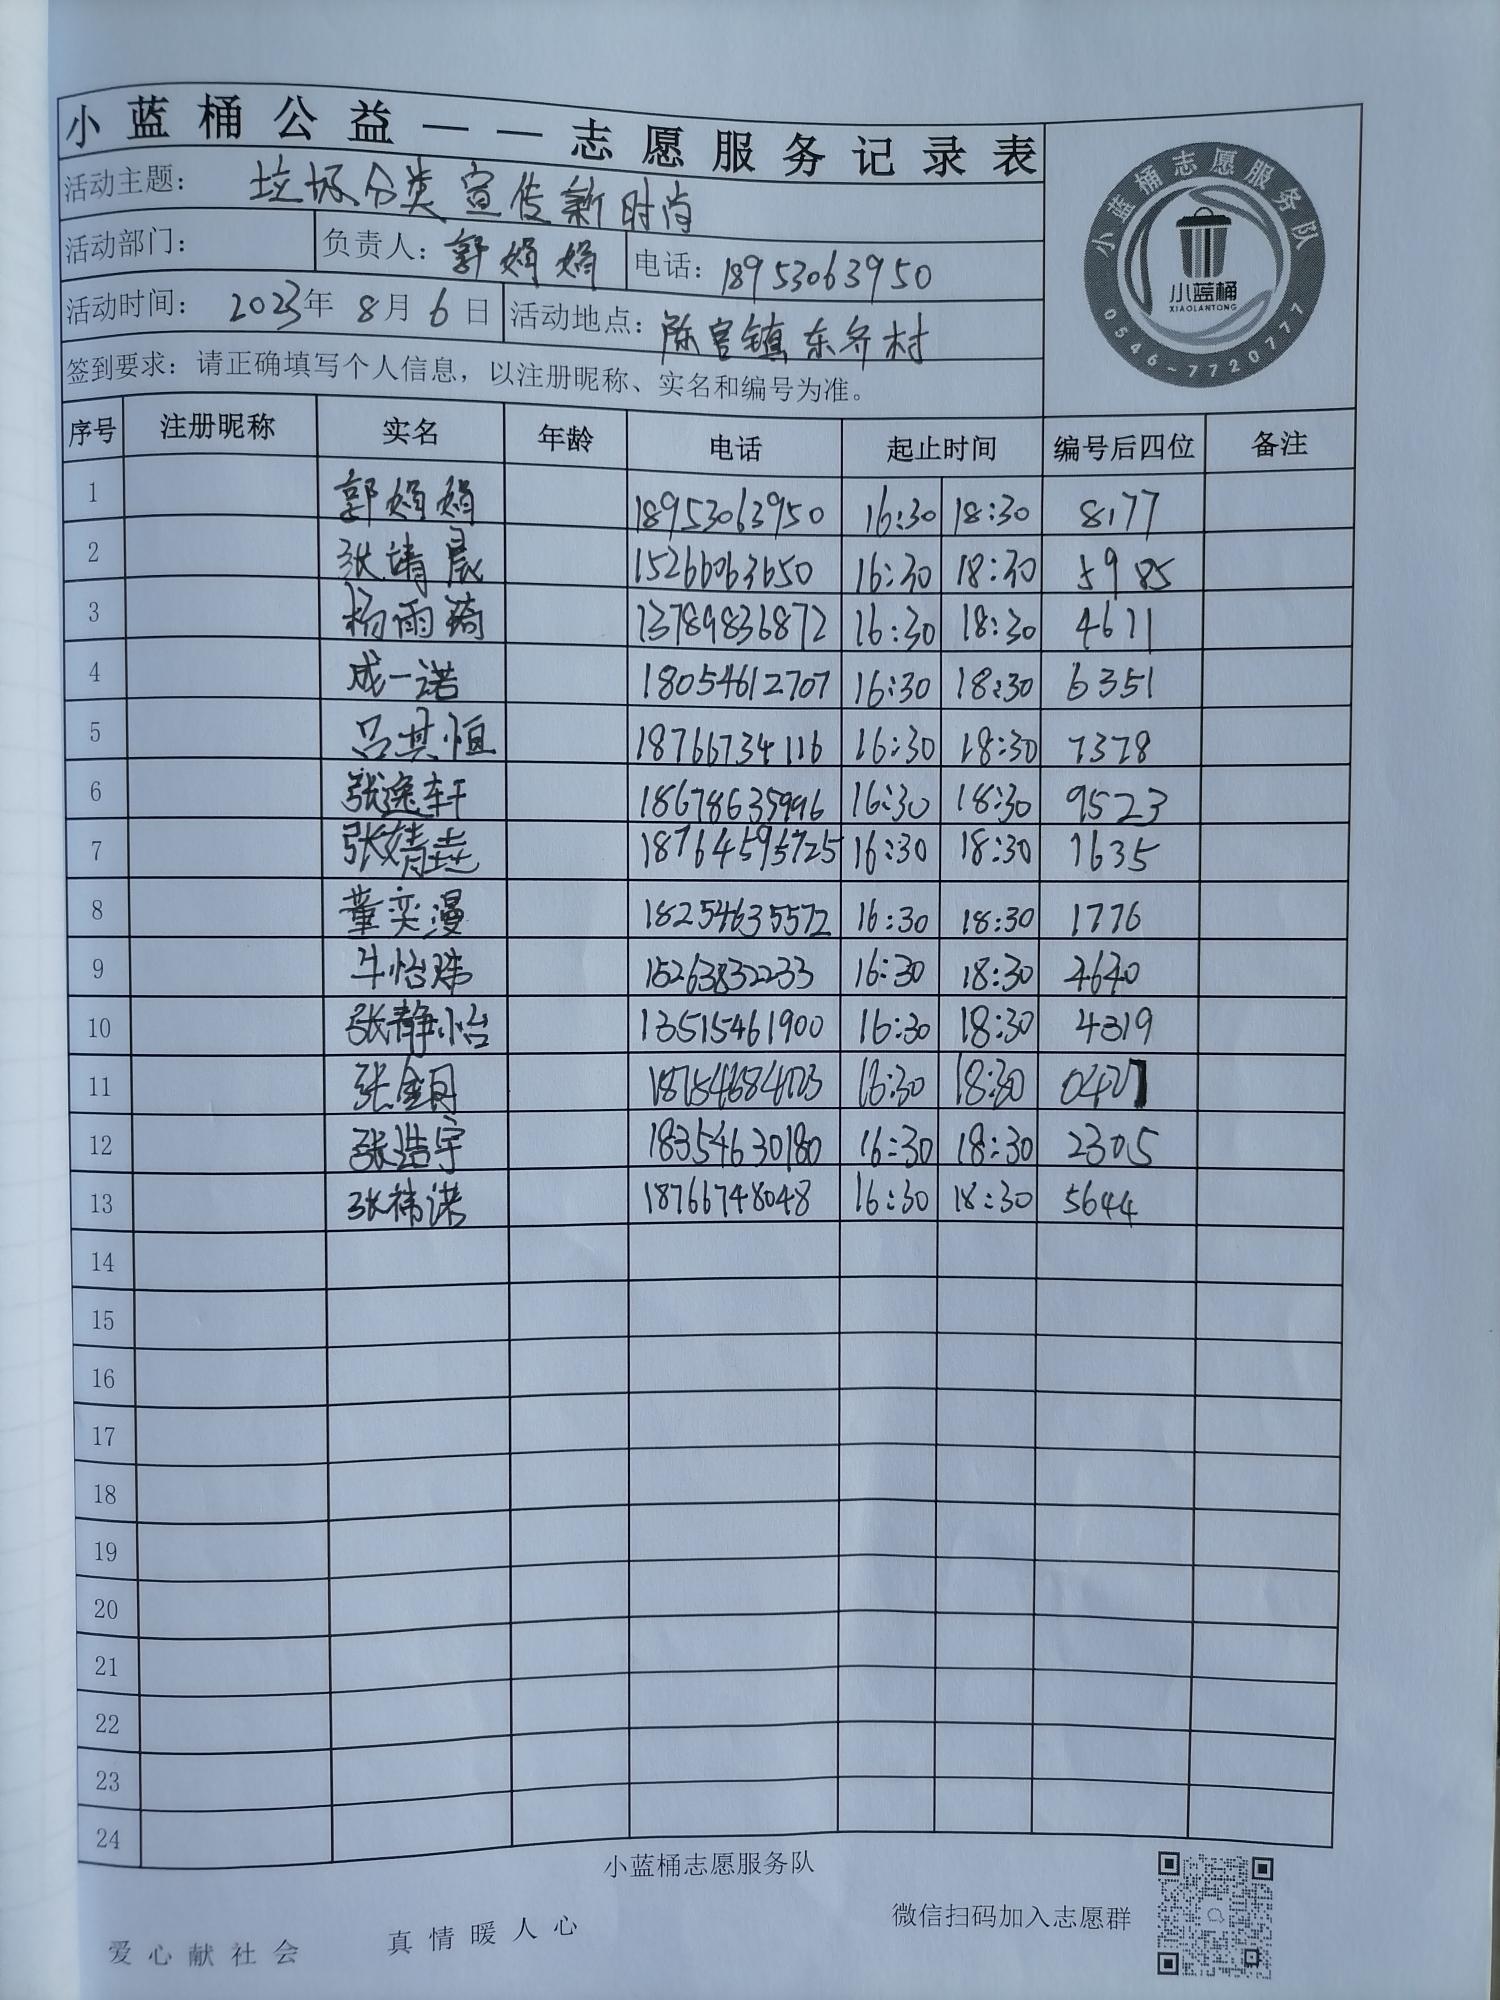 小蓝桶公益——志愿服务记录表
活动主题： 垃圾分类宣传新时尚
活动部门： 负责人：郭娟娟 电话：18953063950
活动时间： 2023年 8月 6日 活动地点：陈官镇东齐村
签到要求：请正确填写个人信息，以注册昵称、实名和编号为准。
小蓝桶志愿服务队
小蓝桶
XIAOLANTONG
0546-7720777
序号 注册昵称 实名 年龄 电话 起止时间 编号后四位 备注
1 郭娟娟 18953063950 16:30 18:30 8177
2 张靖晨 15266063650 16:30 18:30 5985
3 杨雨琦 13789836872 16:30 18:30 4611
4 成一诺 18054612707 16:30 18:30 6351
5 吕其恒 18766734116 16:30 18:30 7378
6 张逸轩 18678635996 16:30 18:30 9523
7 张婧垚 18764595725 16:30 18:30 1635
8 董奕漫 18254635572 16:30 18:30 1776
9 牛怡玮 15263832233 16:30 18:30 4640
10 张静怡 13515461900 16:30 18:30 4319
11 张 16:30 18:30 0427
12 张浩宇 18354630180 16:30 18:30 2305
13 张祎诺 18766748048 16:30 18:30 5644
14
15
16
17
18
19
20
21
22
23
24
小蓝桶志愿服务队
爱心献社会 真情暖人心 微信扫码加入志愿群